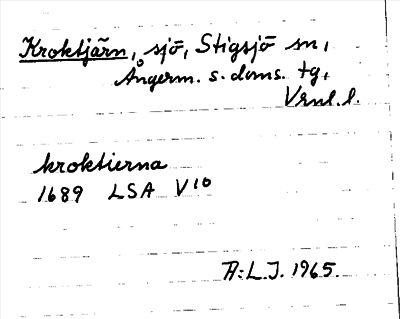 Kroktjärn, sjö, Stigsjö sn,
Ångerm. s. doms. tg,
Vrnl. l.
kroktierna
1689 LSA V10
A:L.J. 1965.